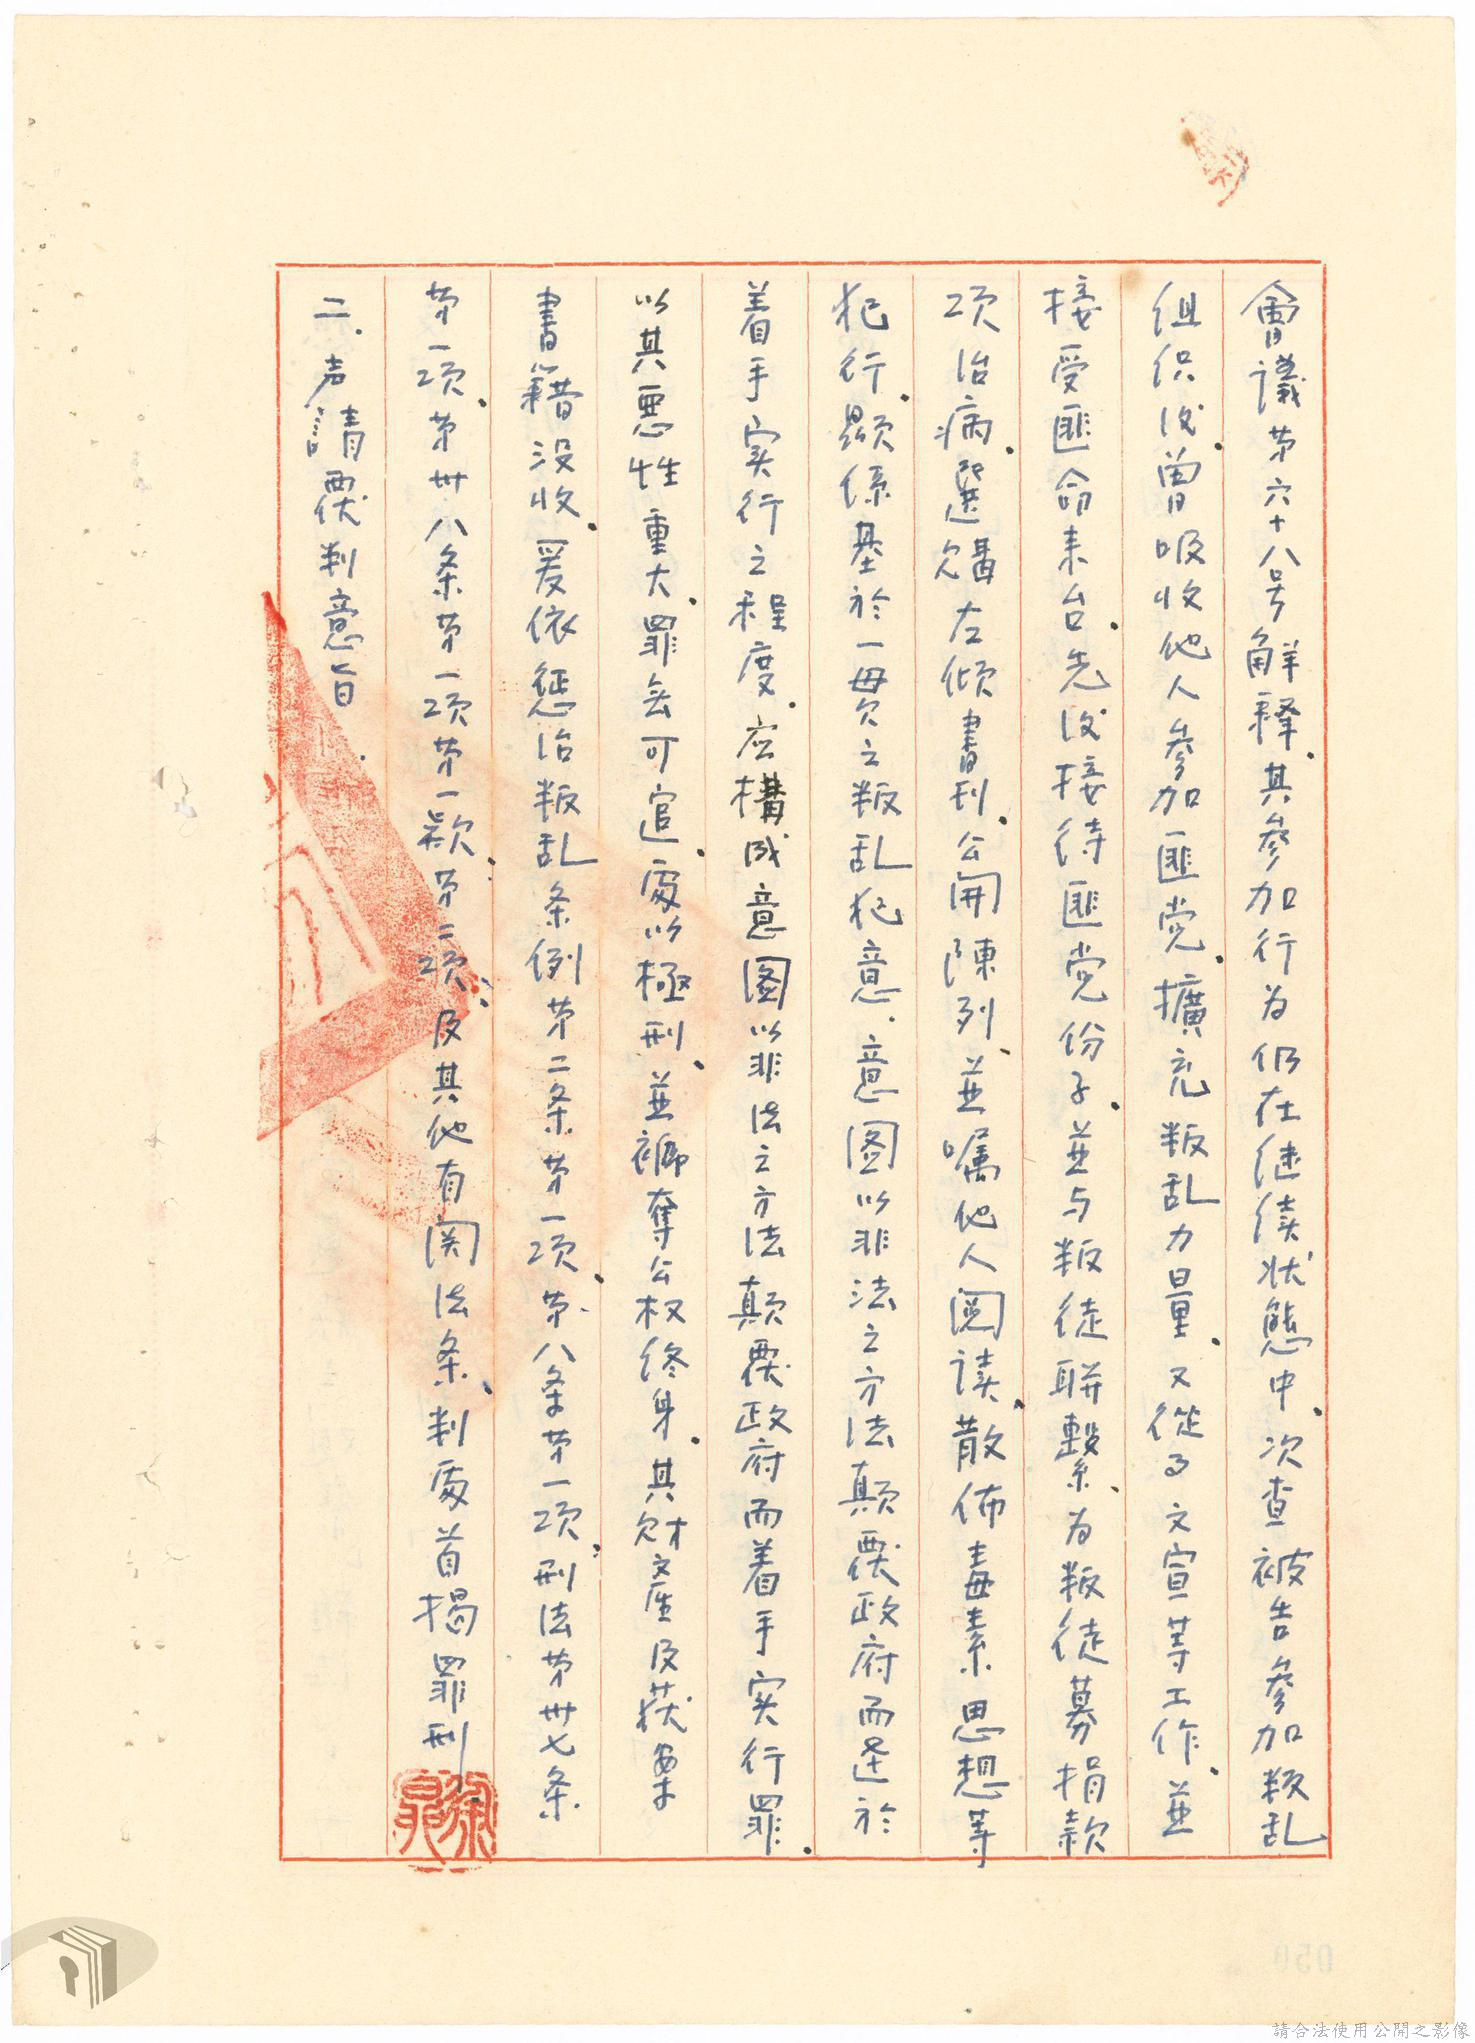 會議第六十八号解释.其參加行为仍在继续状態中.次查被告參加叛乱
组织後.曾吸收他人參加匪党.擴充叛乱力量.又從事文宣等工作.並
接受匪命来台.先後接待匪党份子.並与叛徒联繫.为叛徒募捐款
项治病.選购左倾書刊.公開陳列.並嘱他人阅读.散佈毒素思想等
犯行.顯係基於一貫之叛乱犯意.意图以非法之方法颠覆政府而达於
着手实行之程度.应構成意图以非法之方法颠覆政府而着手实行罪.
以其恶性重大.罪无可逭.處以極刑.並褫奪公权终身.其财産及获案
書籍没收.爰依惩治叛乱条例第二条第一项.第八条第一项.刑法第卅七条
第一项.第卅八条第一项第一款.第二项.及其他有関法条.判處首揭罪刑.
二.声請覆判意旨.
050
請合法使用公開之影像